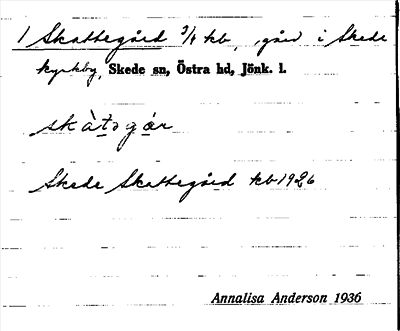 1 Skattegård 3/4 kb, gård i Skede
kyrkby, Skede sn, Östra hd, Jönk. l.
skàtəgár
Skede Skattegård kb 1926
Annalisa Anderson 1936